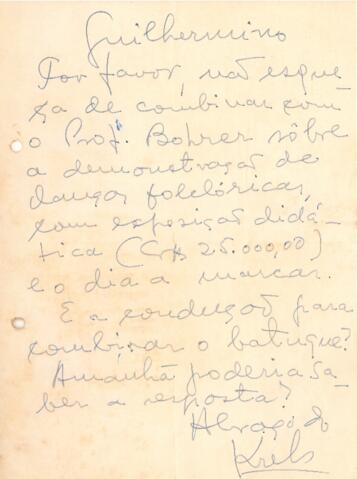 Guilhermino
Por favor, não esque
ça de combinar com
o Prof. Bohrer sôbre
a demonstração de
danças folclóricas,
com exposição didá-
tica (Cr$ 25.000,00)
e o dia a marcar.
E a condução para
combinar o batuque?
Amanhã poderia sa
ber a resposta?
Abraço do
Krebs